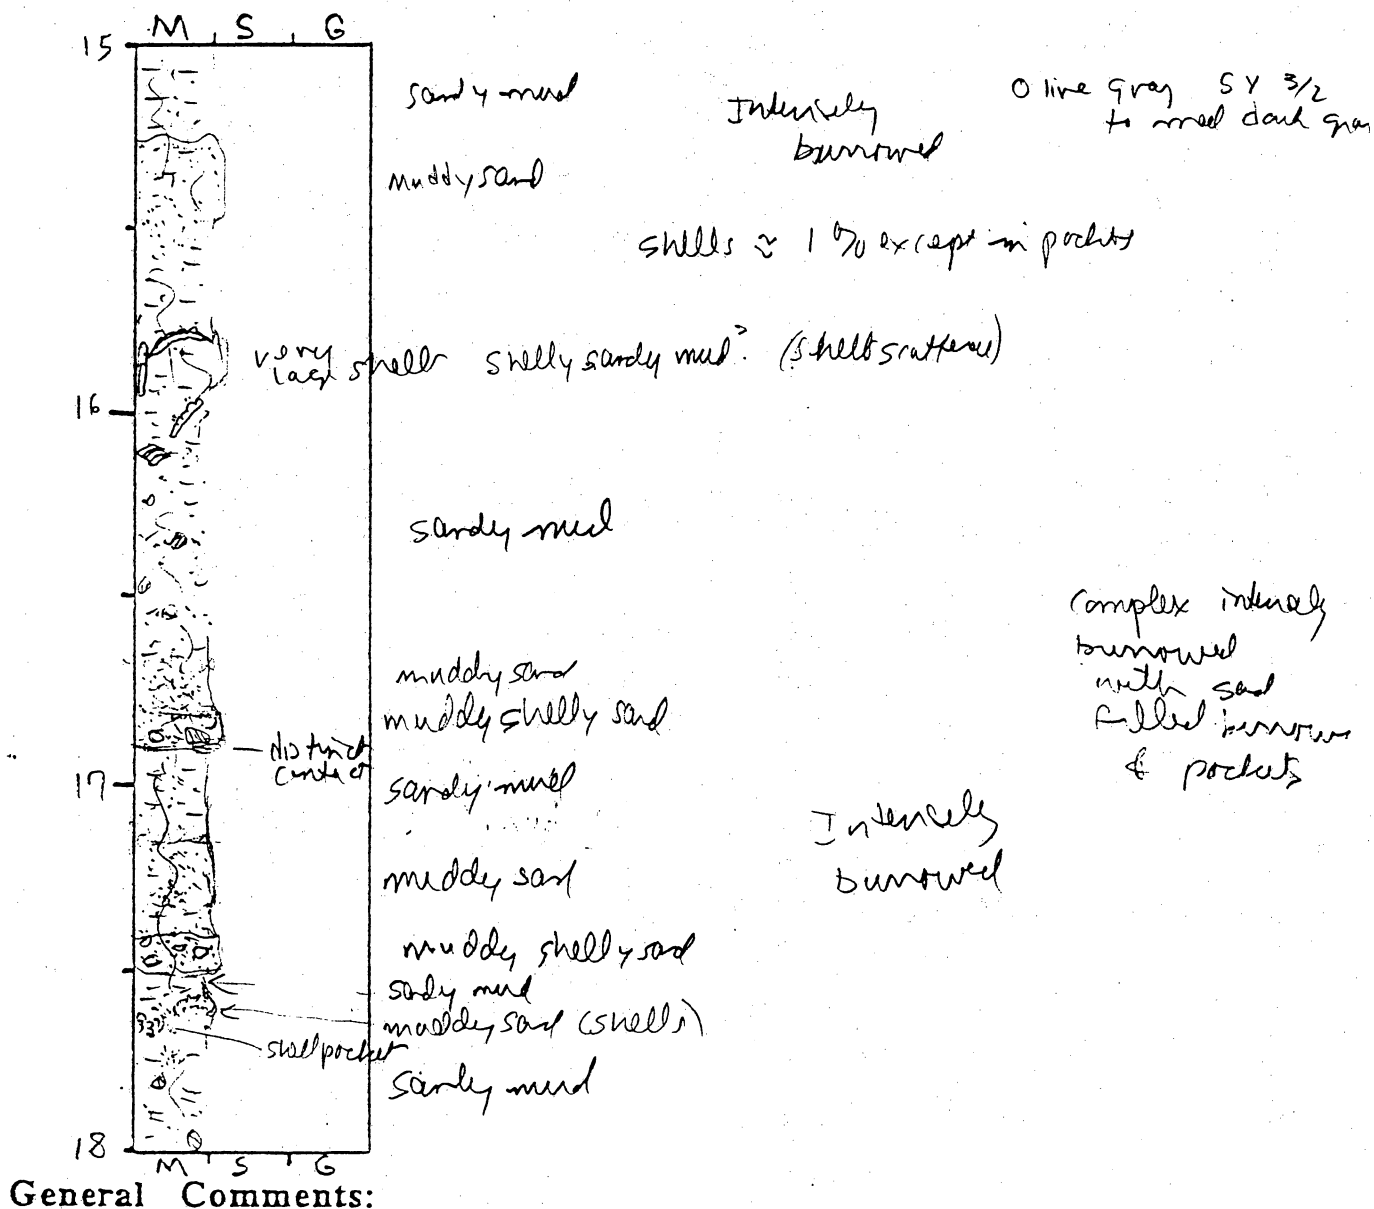 M S G
15
sandy mud
Intensely
burrowed
Olive gray 5Y 3/2
to med dark gray
muddy sand
shells ≈ 1% except in pockets
very
large shell
shelly sandy mud? (shells scattered)
16
sandy mud
Complex intensely
burrowed
with sand
filled burrows
& pockets
muddy sand
muddy shelly sand
distinct
contact
17
sandy mud
Intensely
burrowed
muddy sand
muddy shelly sand
sandy mud
muddy sand (shells)
shell pocket
sandy mud
18
M S G
General Comments: